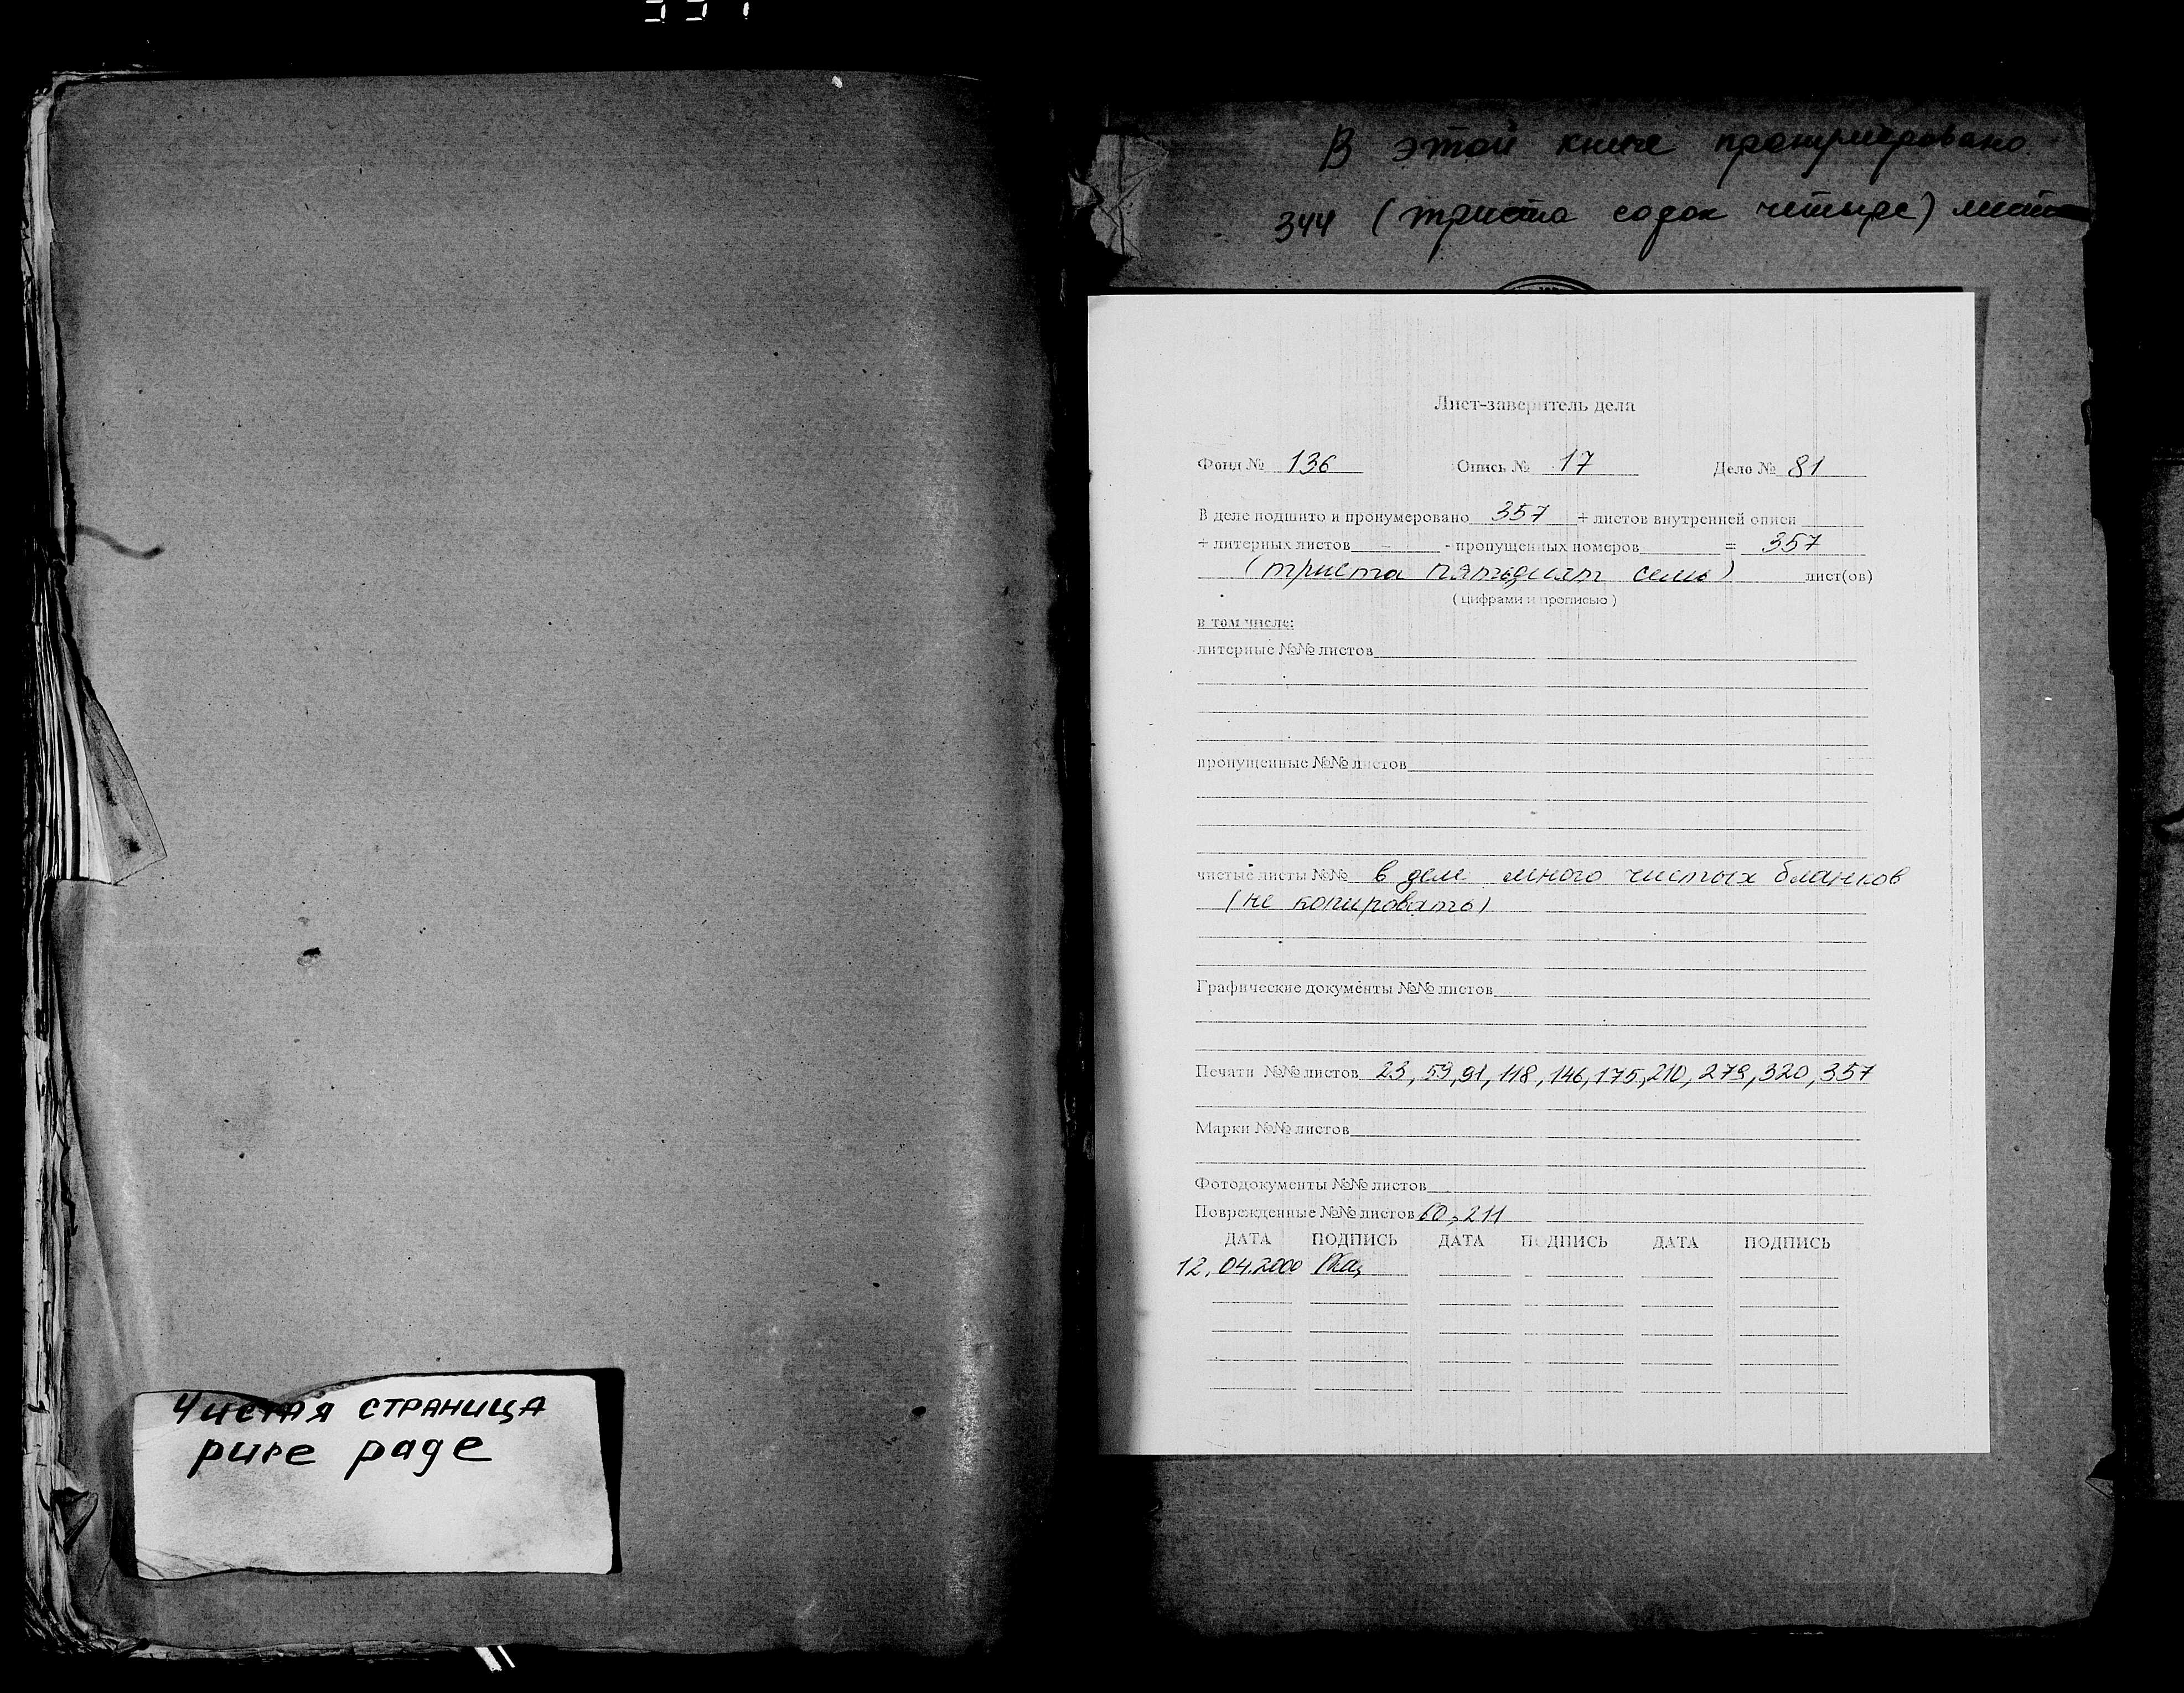 Чистая страница
pure page
В этой книге пронумеровано
344 (триста сорок четыре) листа
Лист-заверитель дела
Фонд № 136 Опись № 17 Дело № 81
В деле подшито и пронумеровано 357 + листов внутренней описи
+ литерных листов - - пропущенных номеров = 357
(триста пятьдесят семь) лист(ов)
( цифрами и прописью )
в том числе:
литерные №№ листов
пропущенные №№ листов
чистые листы №№ в деле много чистых бланков
(не копировать)
Графические документы №№ листов
Печати №№ листов 23, 53, 91, 118, 146, 175, 210, 279, 320, 357
Марки №№ листов
Фотодокументы №№ листов
Поврежденные №№ листов 60, 211
ДАТА ПОДПИСЬ ДАТА ПОДПИСЬ ДАТА ПОДПИСЬ
12.04.2000